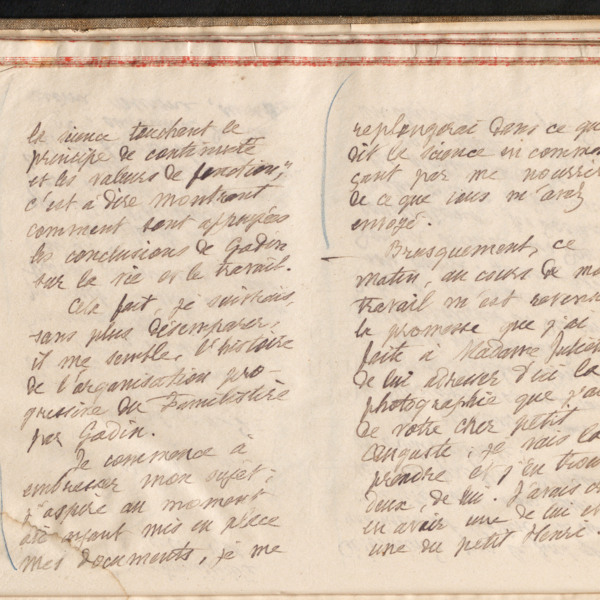 la science touchant le
principe de continuité
et les valeurs de fonction,"
c'est à dire montrant
comment sont appuyées
les conclusions de Godin
sur la vie et le travail.
Cela fait, je suivrais,
sans plus désemparer,
il me semble, l'histoire
de l'organisation pro-
gressive du Familistère
par Godin.
Je commence à
embrasser mon sujet;
j'aspire au moment
où ayant mis en place
mes documents, je me
replongerai dans ce que
dit la science en commen
çant par me nourrir
de ce que vous m'avez
envoyé.
Brusquement, ce
matin, au cours de mon
travail m'est revenue
la promesse que j'ai
faite à Madame Julien
de lui adresser d'ici la
photographie que j'ai
de votre cher petit
Auguste; je vais la
prendre et j'en trouve
deux, de lui. J'avais cru
en avoir une de lui et
une du petit Henri.